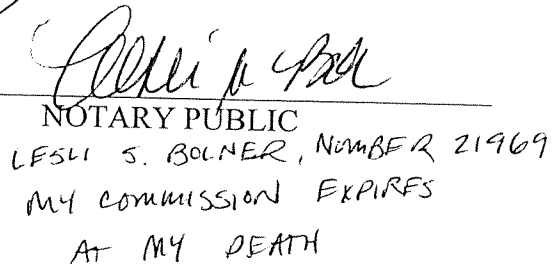 NOTARY PUBLIC
LESLI S. BOLNER, NUMBER 21969
MY COMMISSION EXPIRES
AT MY DEATH